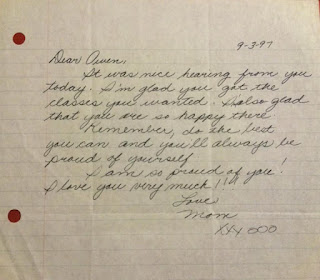 9-3-97
Dear Owen,
It was nice hearing from you
today. I'm glad you got the
classes you wanted. I also glad
that you are so happy there
Remember, do the best
you can and you'll always be
proud of yourself
I am so proud of you!
I love you very much!!!
Love
Mom
XXX OOO